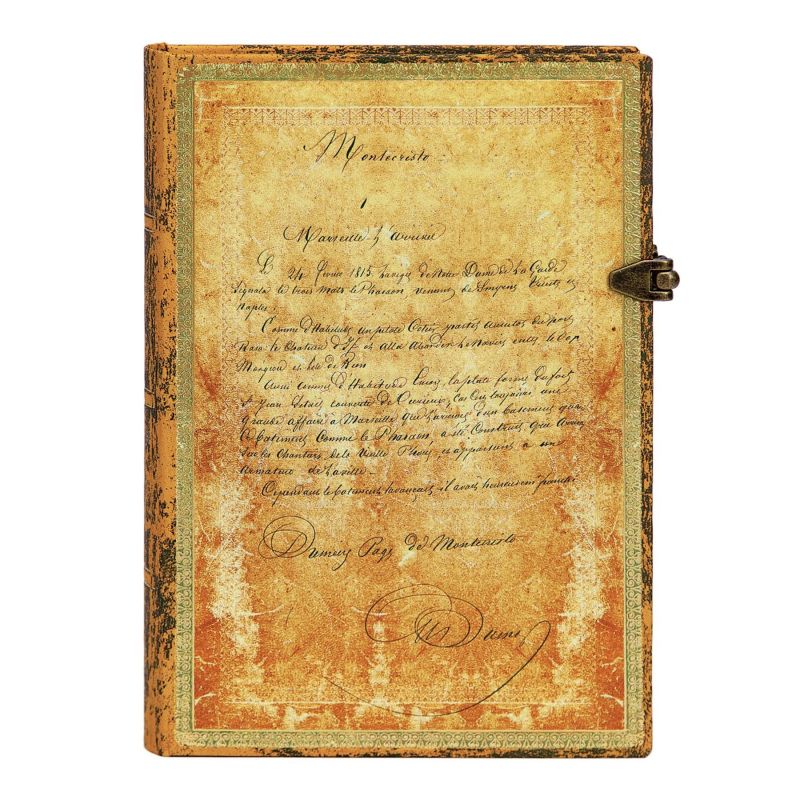 Montecristo
1
Marseille – L'arrivée
Le 24 février 1815. la vigie de Notre Dame de La Garde
Signala le trois mats le Pharaon, venant de Smyrne Trieste et
Naples
Comme d'habitude un pilote Cotier partit aussitot du port
Rasa le Chateau d'If et alla aborder le Navire entre le Cap
Morgiou et l'ile de Rion
Aussi comme d'habitude la plate forme du fort
St Jean s'etait couverte de Curieux, car c'est toujours une
grande affaire à Marseille que l'arrivée d'un batiment quand
ce batiment comme le Pharaon, a été Construit,
sur les Chantiers de la Vieille et appartient à un
armateur de la ville –
Cependant le batiment avançait, il avait heureusement franchi
Dumas Page de Montecristo
Alex Dumas